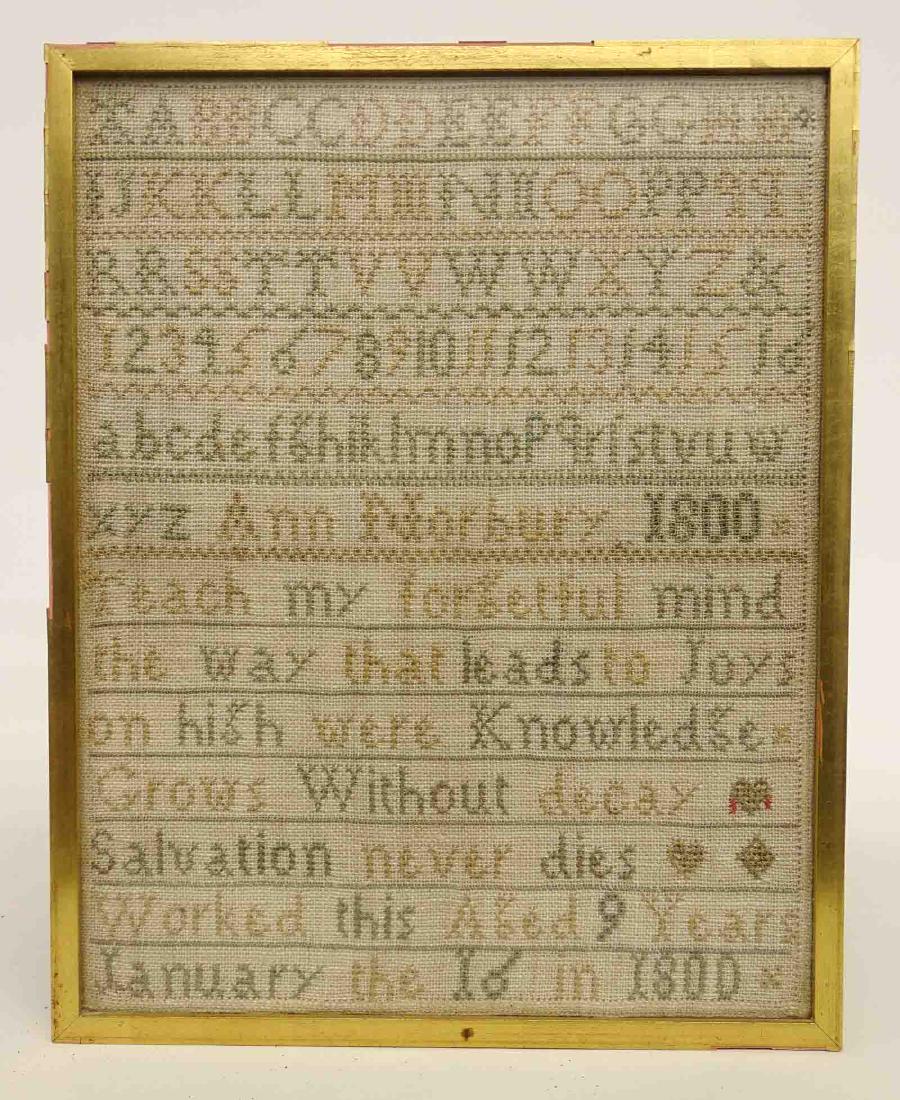 AABBCCDDEEFFGGHH
IJKKLLMMNNOOPPqq
RRSSTTVVWWXYZ&
12345678910111213141516
abcdefghiklmnopqrſstvuw
xyz Ann Norbury 1800
Teach my forgetful mind
the way that leads to Joys
on high were Knowledge
Grows Without decay
Salvation never dies
Worked this Aged 9 Years
January the 16 in 1800